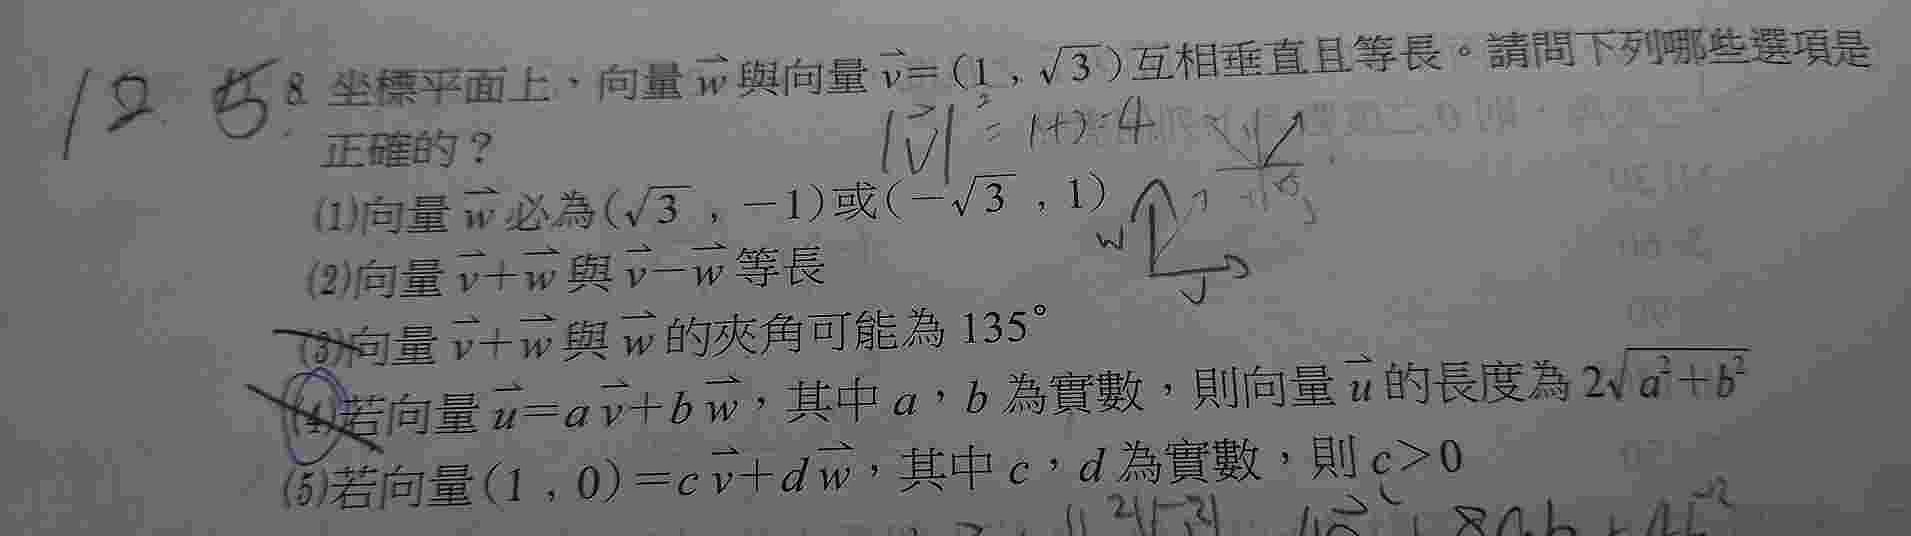 12. 5. 8. 坐標平面上，向量 w⃗ 與向量 v⃗=(1 , √3)互相垂直且等長。請問下列哪些選項是
正確的？
|v⃗|² = 1+3=4
(1)向量 w⃗ 必為(√3 , −1)或(−√3 , 1)
w
v
(2)向量 v⃗+w⃗ 與 v⃗−w⃗ 等長
(3)向量 v⃗+w⃗ 與 w⃗ 的夾角可能為 135°
(4)若向量 u⃗=a v⃗+b w⃗，其中 a，b 為實數，則向量 u⃗ 的長度為 2√(a²+b²)
(5)若向量(1 , 0)=c v⃗+d w⃗，其中 c，d 為實數，則 c>0